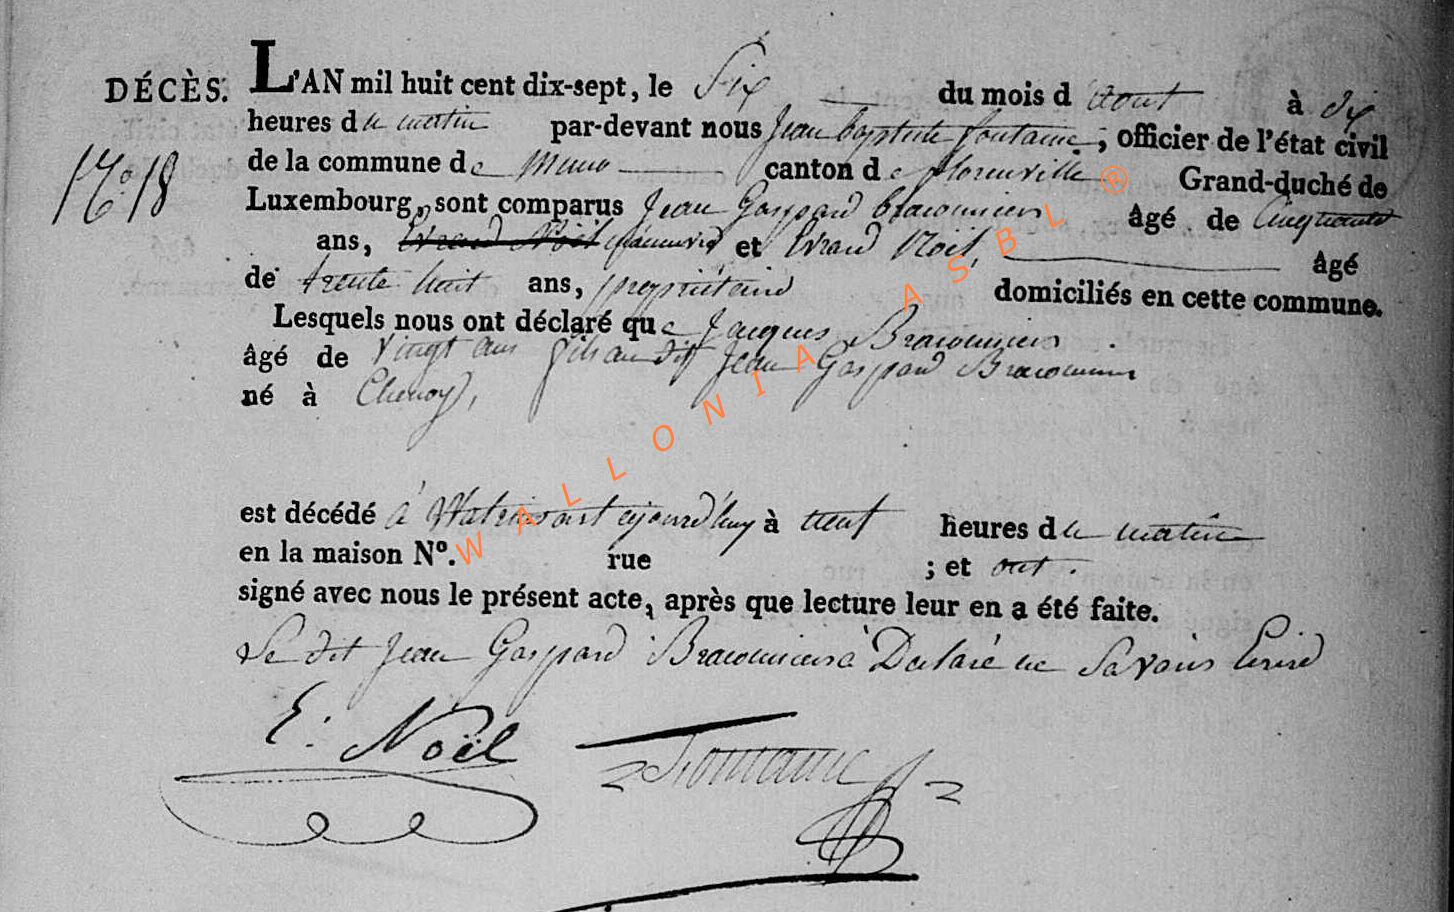 DÉCÈS. L'AN mil huit cent dix-sept, le Six du mois d'aout à dix
heures du matin par-devant nous Jean baptiste fontaine, officier de l'état civil
N.° 18 de la commune de Muno canton de florenville Grand-duché de
Luxembourg, sont comparus Jean Gaspard braconnier âgé de Cinquante
ans, Evrard Noël manuvre et Evrard Noël, âgé
de trente huit ans, proprietaire domiciliés en cette commune.
Lesquels nous ont déclaré que Jacques Braconnier
âgé de vingt ans fils au dit Jean Gaspard Braconnier
né à Chenoy,
est décédé à Watrinsart ajourd'huy à neuf heures du matin
en la maison N°. rue ; et ont
signé avec nous le présent acte, après que lecture leur en a été faite.
Le dit Jean Gaspard Braconnier à Déclaré ne Savoir Ecrire
E: Noël Fontaine
WALLONIA ASBL ®